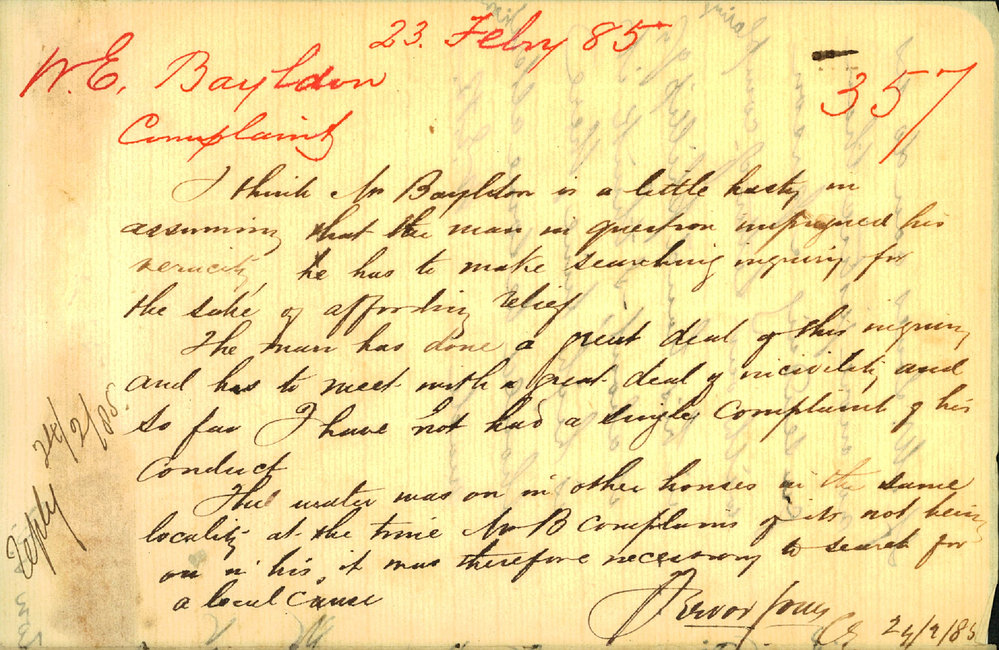 23. Febry 85
W.E. Bayldon
357
Complaint
I think Mr Bayldon is a little hasty in
assuming that the man in question impugned his
veracity he has to make searching inquiry for
the sake of affording relief
The man has done a great deal of this inquiry
and has to meet with a great deal of incivility and
so far I have not had a single complaint of his
conduct
The water was on in other houses in the same
locality at the time Mr B complains of its not being
on in his, it was therefore necessary to search for
a local cause
Trevor Jones
CE 24/2/85
Reply 24/2/85.